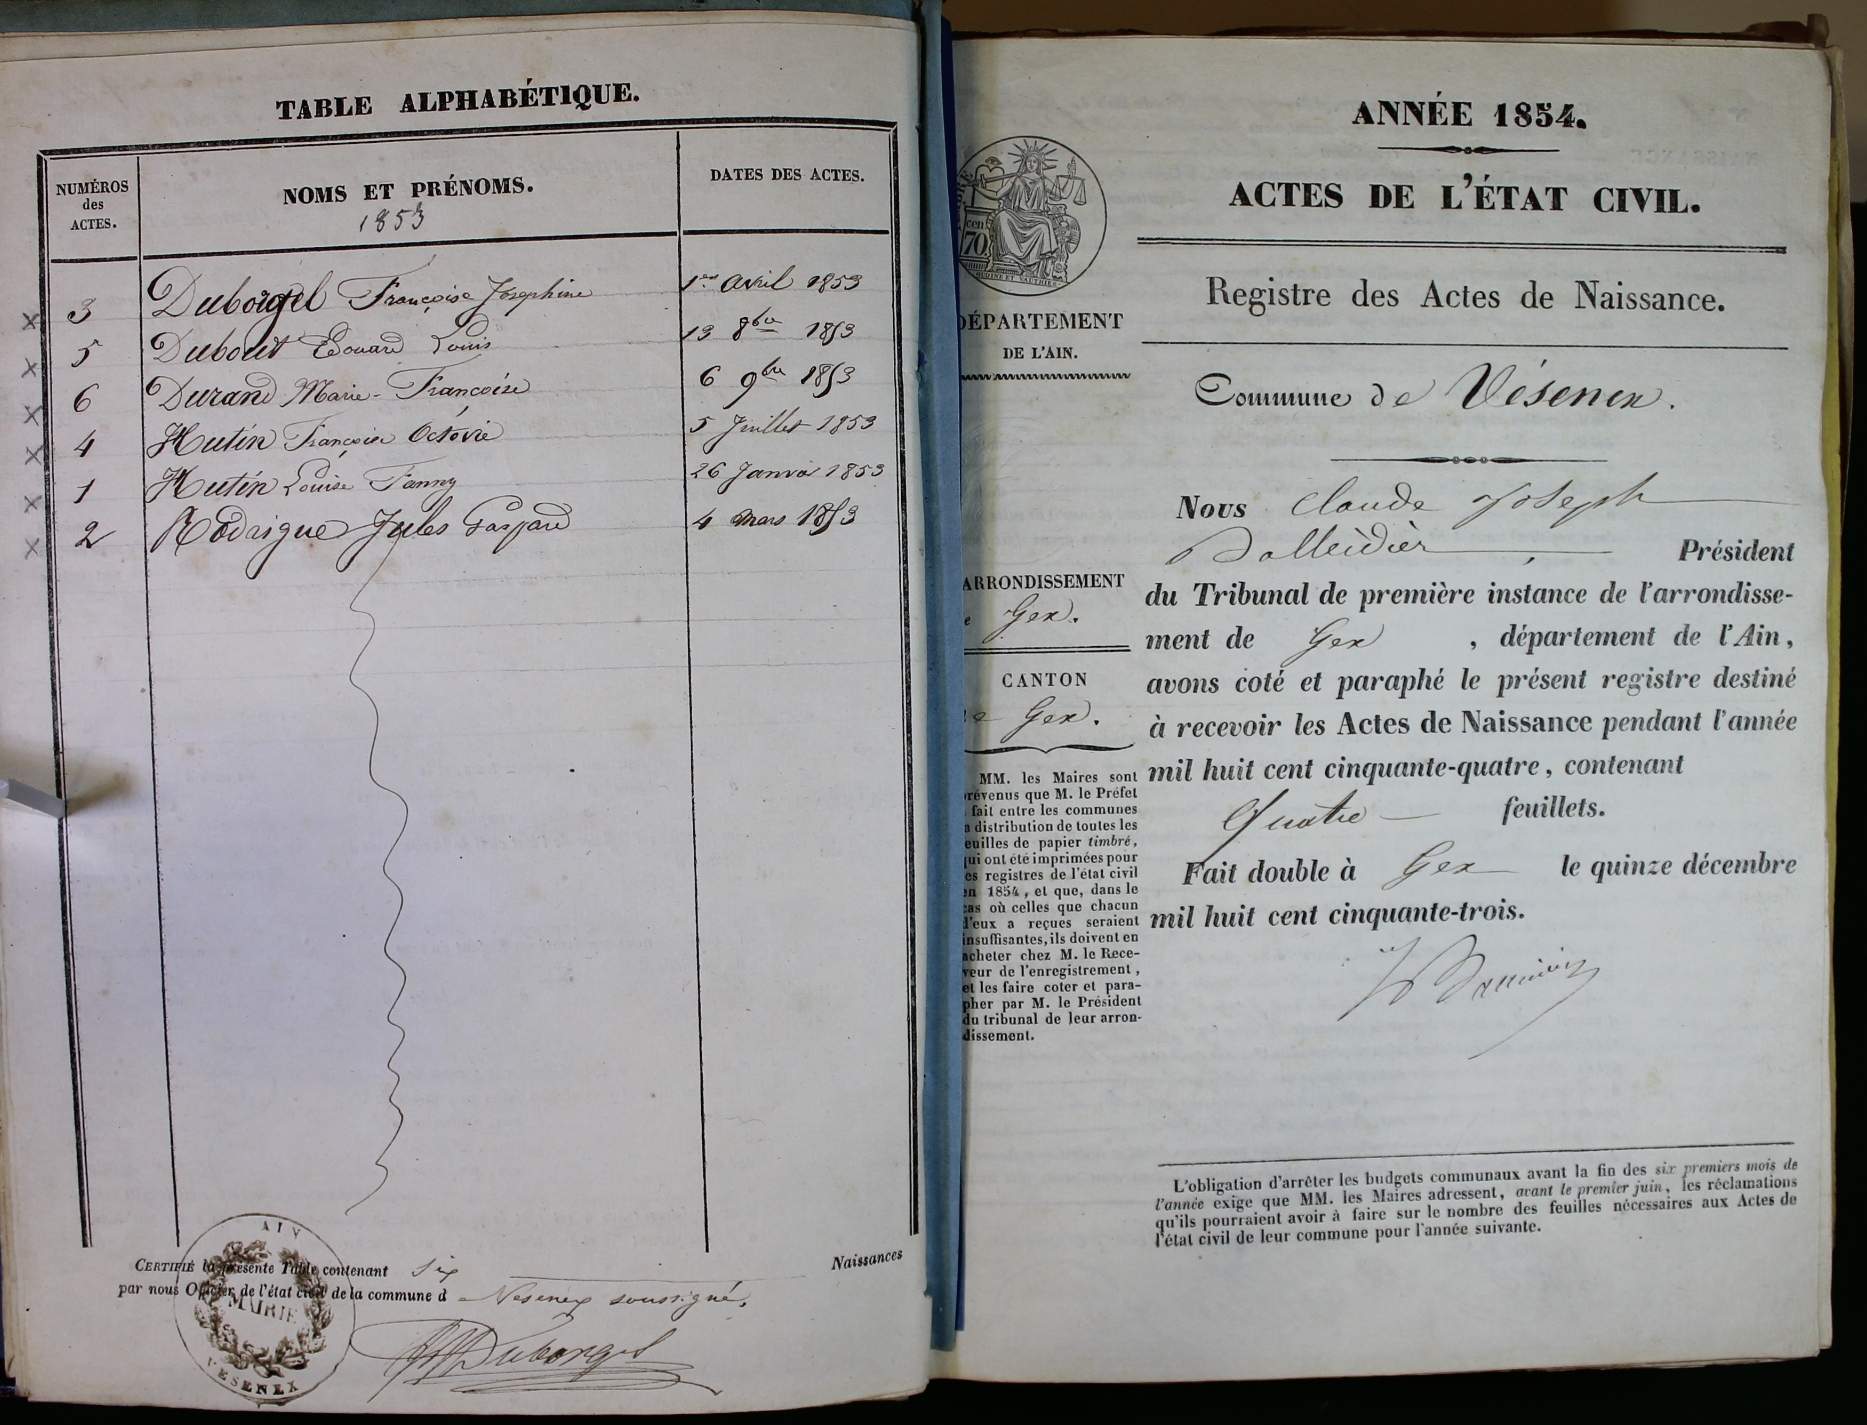 TABLE ALPHABÉTIQUE.
NUMÉROS
des
ACTES.
NOMS ET PRÉNOMS.
1853
DATES DES ACTES.
3 Duborgel Françoise Josephine 1er avril 1853
5 Dubout Edouard Louis 13 8bre 1853
6 Durand Marie-Françoise 6 9bre 1853
4 Hutin Françoise Octovie 5 Juillet 1853
1 Hutin Louise Fanny 26 Janvier 1853
2 Rodrigue Jules Gaspard 4 mars 1853
CERTIFIÉ la présente Table contenant Six Naissances
par nous Officier de l'état civil de la commune d e Vesenex soussigné.
AIN
MAIRIE
VESENEX
Duborgel
ANNÉE 1854.
ACTES DE L'ÉTAT CIVIL.
Registre des Actes de Naissance.
Commune de Vésenex.
cen
70
DÉPARTEMENT
DE L'AIN.
ARRONDISSEMENT
e Gex.
CANTON
e Gex.
MM. les Maires sont
prévenus que M. le Préfet
fait entre les communes
a distribution de toutes les
feuilles de papier timbré,
qui ont été imprimées pour
es registres de l'état civil
en 1854, et que, dans le
cas où celles que chacun
d'eux a reçues seraient
insuffisantes, ils doivent en
acheter chez M. le Rece-
veur de l'enregistrement,
et les faire coter et para-
pher par M. le Président
du tribunal de leur arron-
dissement.
Nous Claude Joseph
Président
du Tribunal de première instance de l'arrondisse-
ment de Gex, département de l'Ain,
avons coté et paraphé le présent registre destiné
à recevoir les Actes de Naissance pendant l'année
mil huit cent cinquante-quatre, contenant
Quatre feuillets.
Fait double à Gex le quinze décembre
mil huit cent cinquante-trois.
L'obligation d'arrêter les budgets communaux avant la fin des six premiers mois de
l'année exige que MM. les Maires adressent, avant le premier juin, les réclamations
qu'ils pourraient avoir à faire sur le nombre des feuilles nécessaires aux Actes de
l'état civil de leur commune pour l'année suivante.